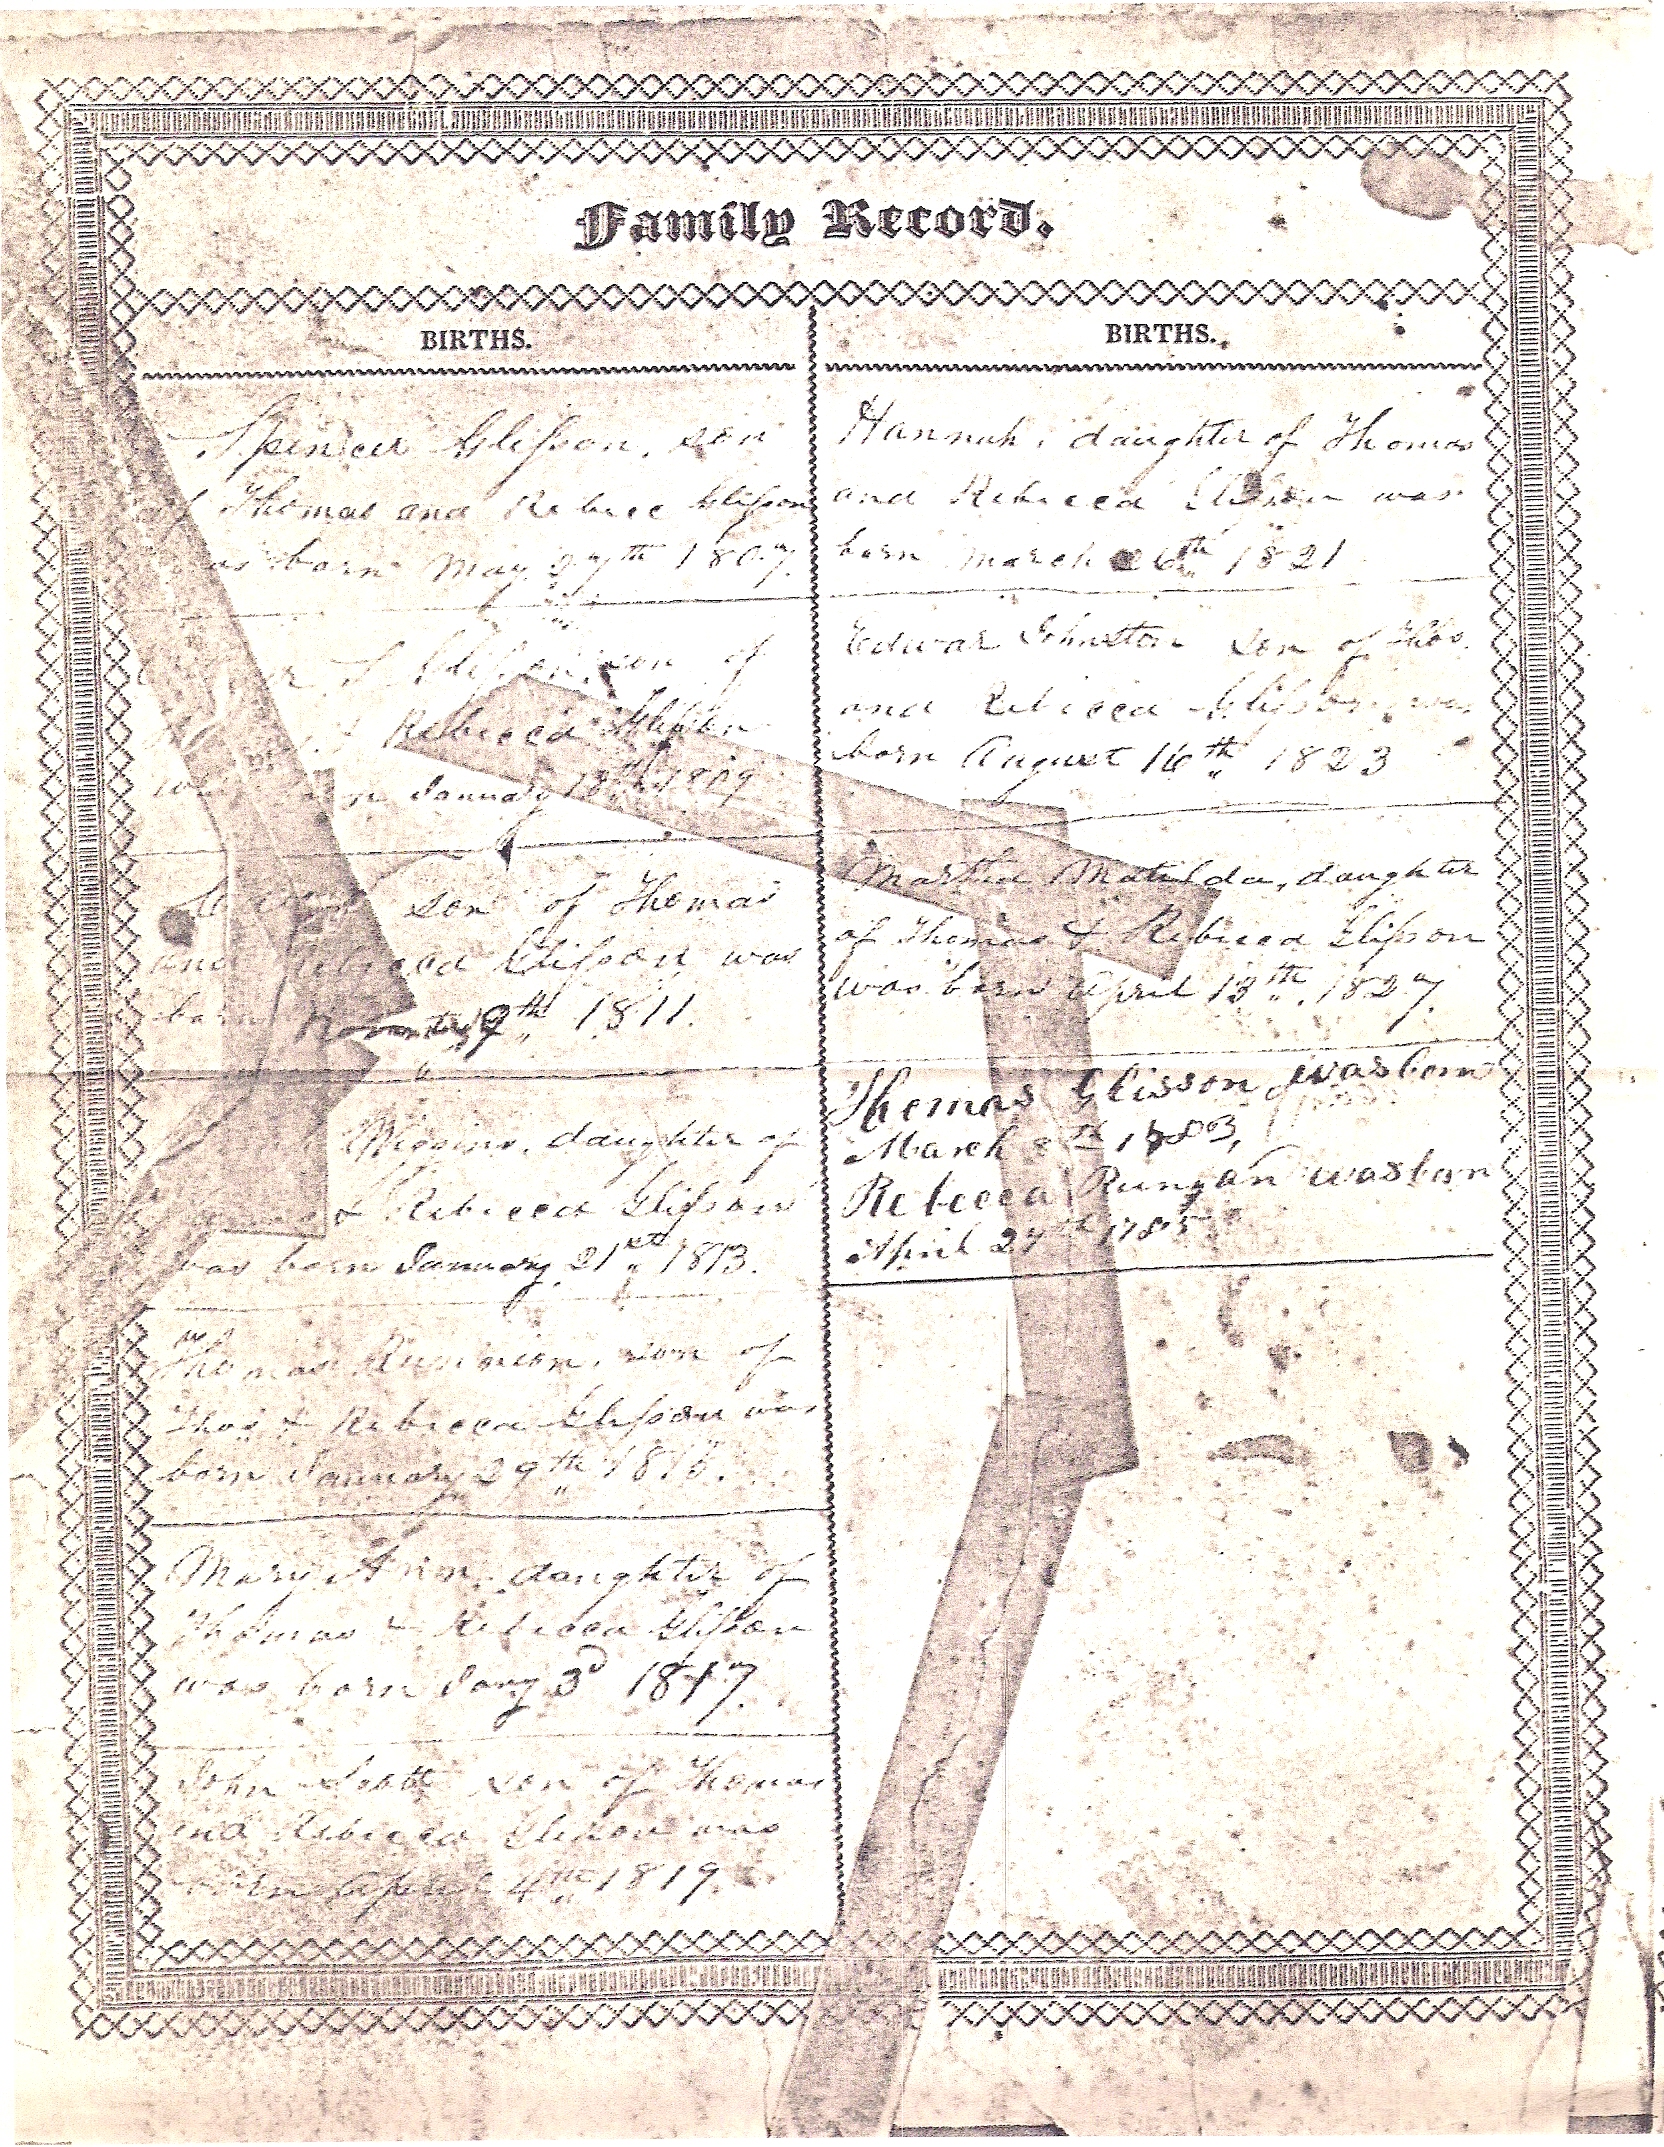 Family Record.
BIRTHS.
Spencer Glisson, son
Thomas and Rebecc Glisson
as born May 27th 1807.
Glisson, son of
& Rebecca Glisson
January 13th 1809
son of Thomas
and Rebecca Glisson, was
born 9th 1811.
Wiggins, daughter of
& Rebecca Glisson
was born January 21st 1813.
Thomas son of
Thos & Rebecca Glisson was
born January 29th
Mary Ann, daughter of
Thomas & Rebecca Glisson
was born Jany 3d 1817.
John Scott son of Thomas
and Rebecca Glisson was
born April 4th 1819.
BIRTHS.
Hannah, daughter of Thomas
and Rebecca Glisson was
born March 6th 1821
Edwar Johnston son of Thos.
and Rebecca Glisson, was
born August 16th 1823
Martha Matilda, daughter
of Thomas & Rebecca Glisson
was born April 13th 1827.
Thomas Glisson was born
March 8th
Rebecca Runyan was born
April 27th 1785